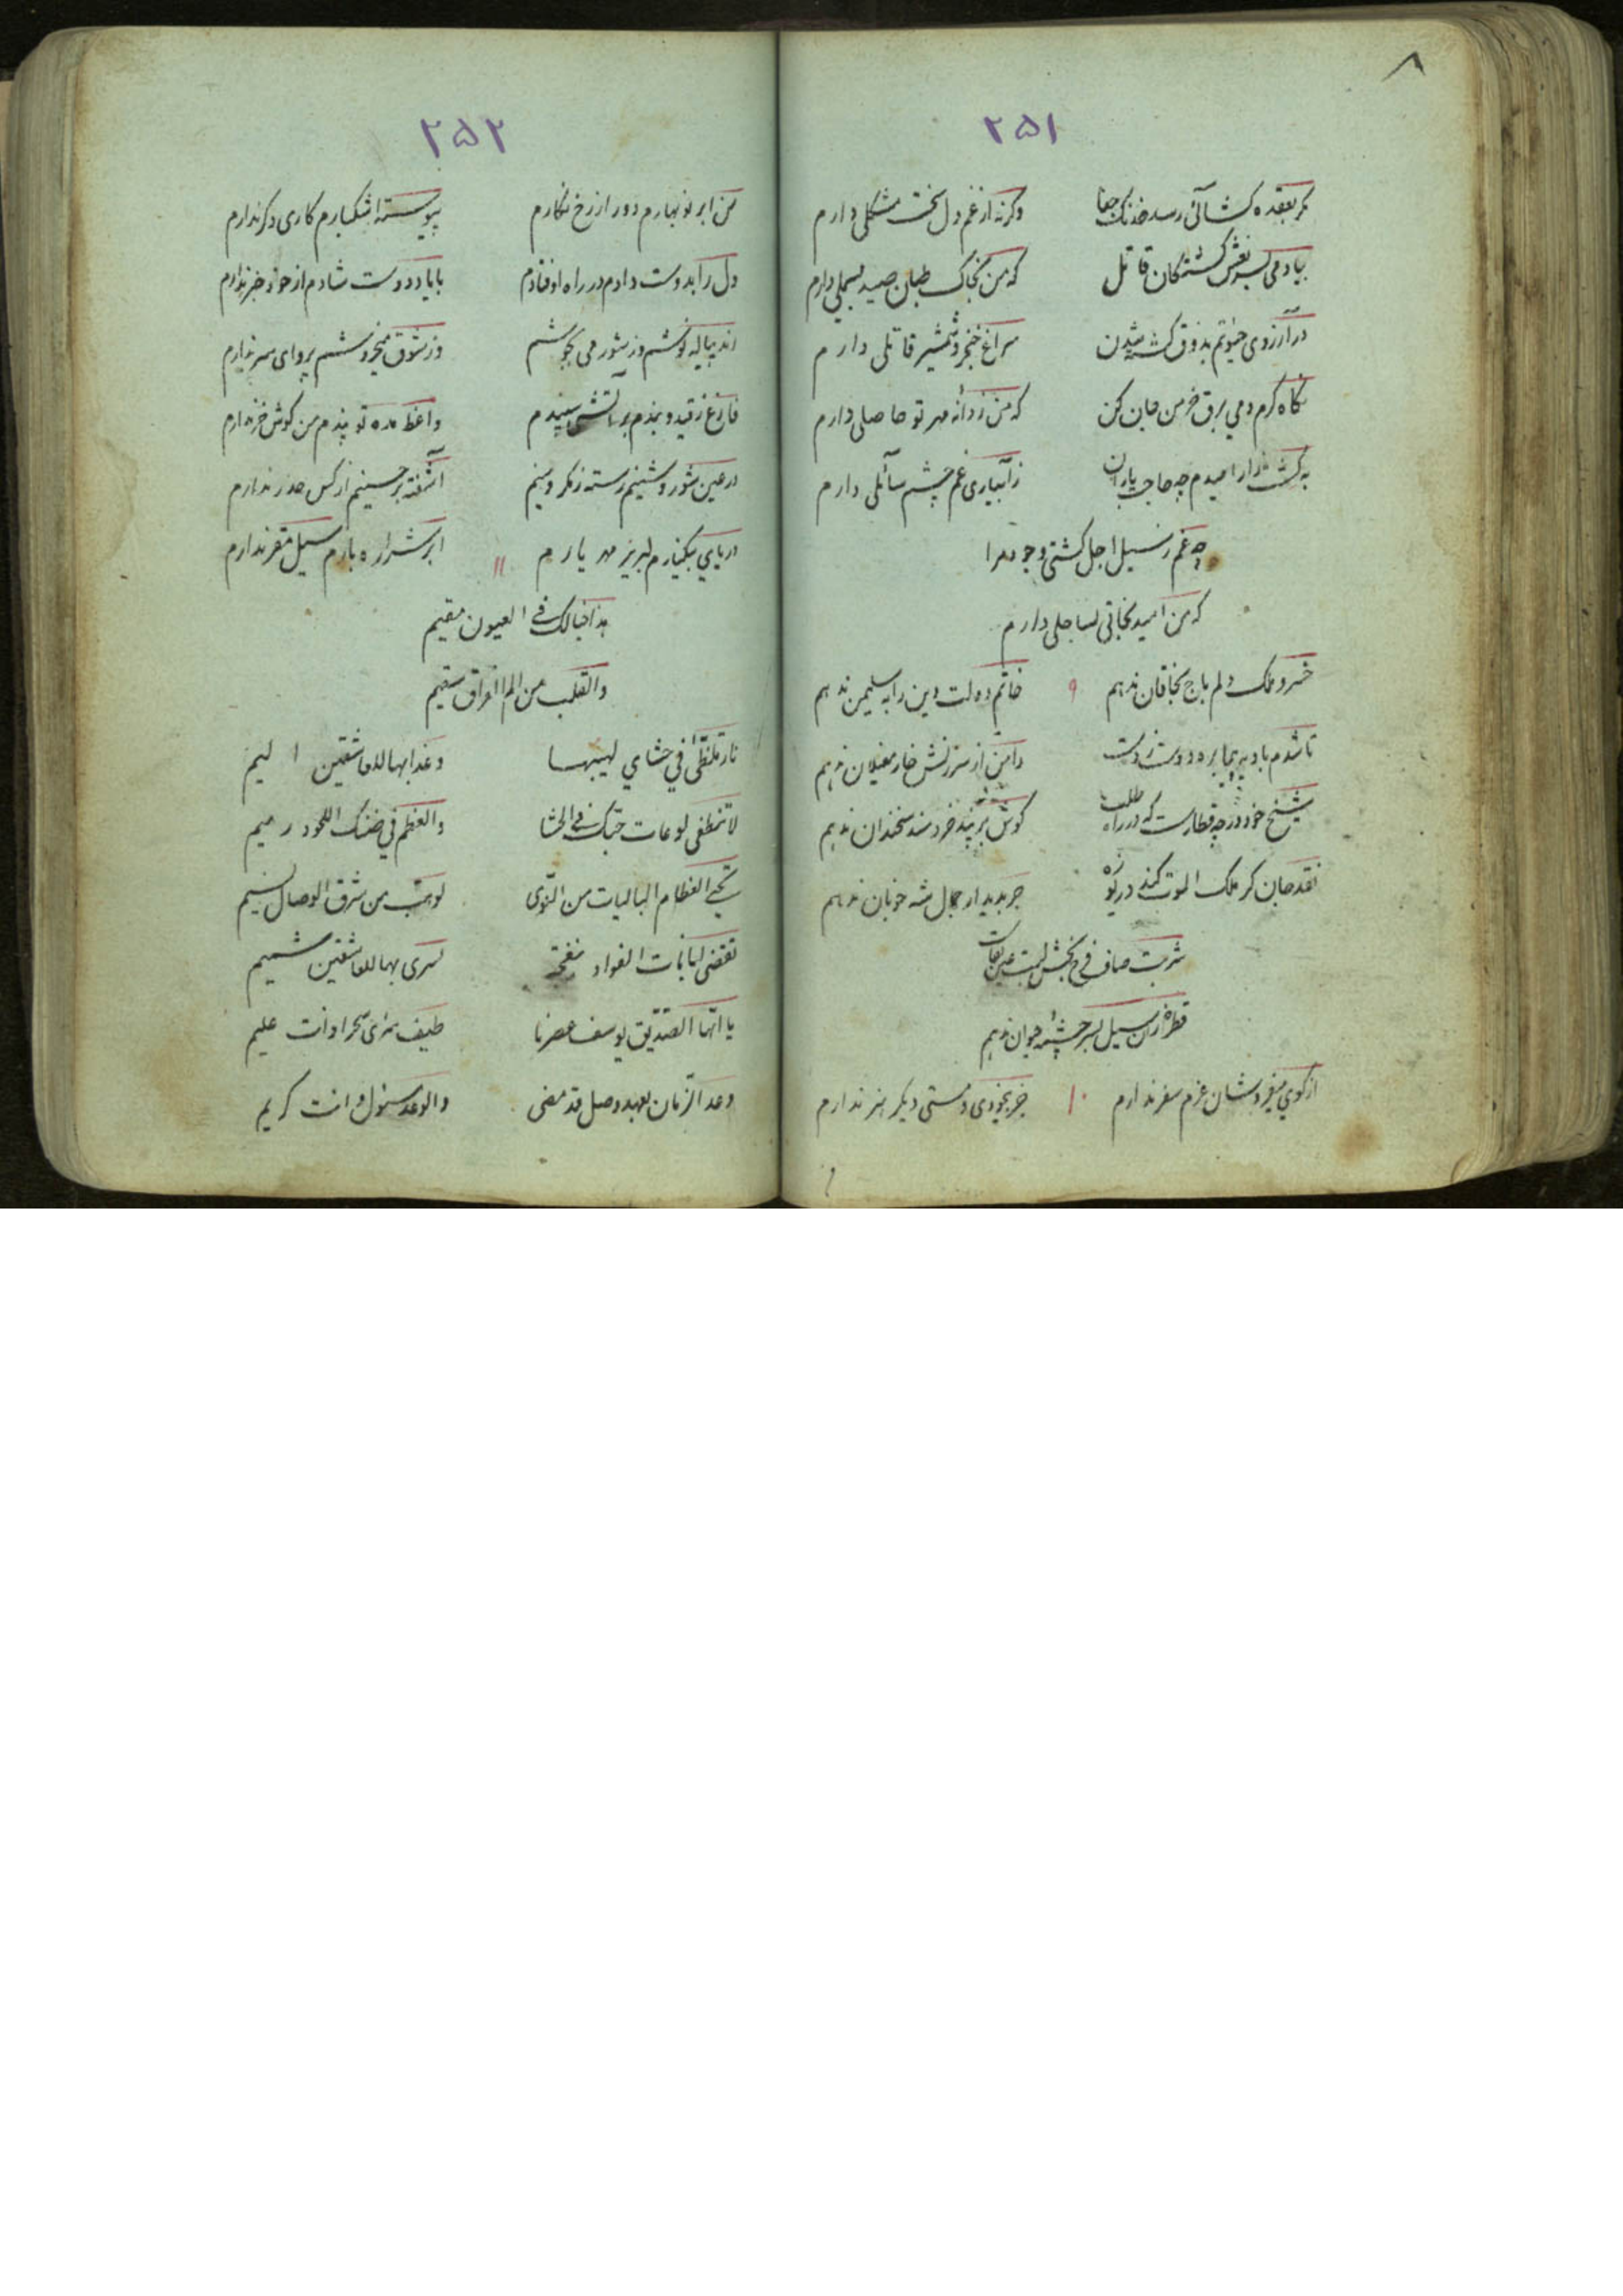 ۸
۲۵۱
مگر بعقده کشائی رسد خدنک جفا وگرنه از غم دل سخت مشکلی دارم
بیا دمی بسر نعش کشتگان قاتل که من بخاک طپان صید بسملی دارم
در آرزوی حیوتم بذوق کشته شدن سراغ خنجر و شمشیر قاتلی دارم
نگاه گرم دمی برق خرمن جان کن که من ز دانه مهر تو حاصلی دارم
به کشت زار امیدم چه حاجت باران ز آبیاری غم چشم سائلی دارم
چه غم ز سیل اجل کشتی وجود مرا
که من امید نجاتی بساحلی دارم
خسرو ملک دلم باج بخاقان ندهم ۹ خاتم دولت دین را به سلیمن ندهم
تا شدم بادیه پیما بره دوست ز دست دامن از سرزنش خار مغیلان ندهم
شیخ خود در چه قطارست که در راه طلب گوش بر پند خردمند سخندان ندهم
نقد جان گر ملک الموت کند دریوزه جز بدیدار جمال شه خوبان ندهم
شربت صاف فرح بخش لبت عین بقاست
قطرۀ زان سیل بسر چشمۀ حیوان ندهم
از کوی میفروشان عزم سفر ندارم ۱۰ جز بیخودی و مستی دیگر هنر ندارم
۲۵۲
من ابر نوبهارم دور از رخ نگارم پیوسته اشکبارم کاری دگر ندارم
دل را بدوست دادم در راه اوفتادم با یاد دوست شادم از خود خبر ندارم
زند پیاله نوشم وز شور می بجوشم وز شوق میخروشم پروای سر ندارم
فارغ ز قید و بندم بر آتش سپندم واعظ مده تو پندم من گوش خر ندارم
در عین شور و شینم رسته ز مکر و مینم آشفته بر حسینم از کس حذر ندارم
دریای بیکنارم لبریز مهر یارم ۱۱ ابر شراره بارم سیل مقر ندارم
هذا خیالک فی العیون مقیم
والقلب من الم الفراق سقیم
نار تلظّی فی حشای لهیبها وعذابها للعاشقین الیم
لا تنطفی لوعات حبّک فی الحشا والعظم فی ضنک اللحود رمیم
تحیی العظام البالیات من النّوی لو هبّ من شرق الوصال نسیم
تقضی لبانات الفواد بنفحة یسری بها للعاشقین شمیم
یا ایّها الصّدّیق یوسف عصرنا طیف سری سحرا وانت علیم
وعد الزّمان بعهد وصل قد مضی والوعد مسئول وانت کریم